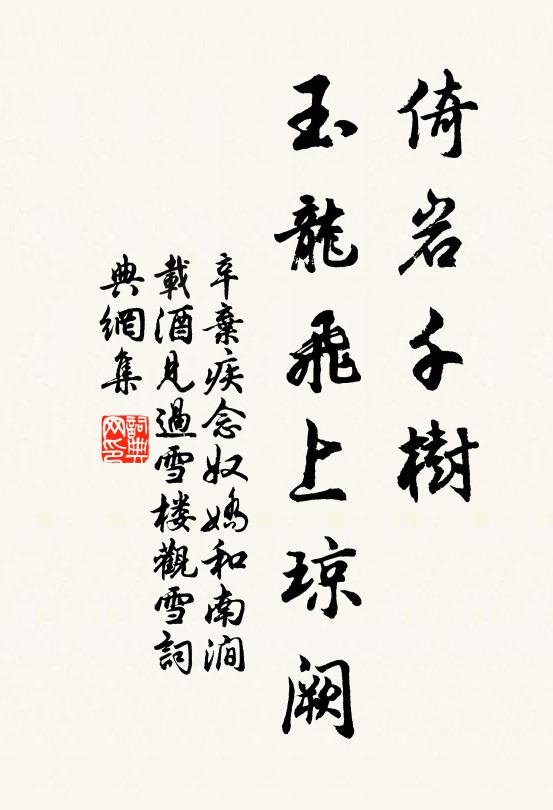 倚岩千樹
玉龍飛上琼阙
辛棄疾念奴嬌和南澗
載酒見過雪楼觀雪詞
典網集
詞典
网印